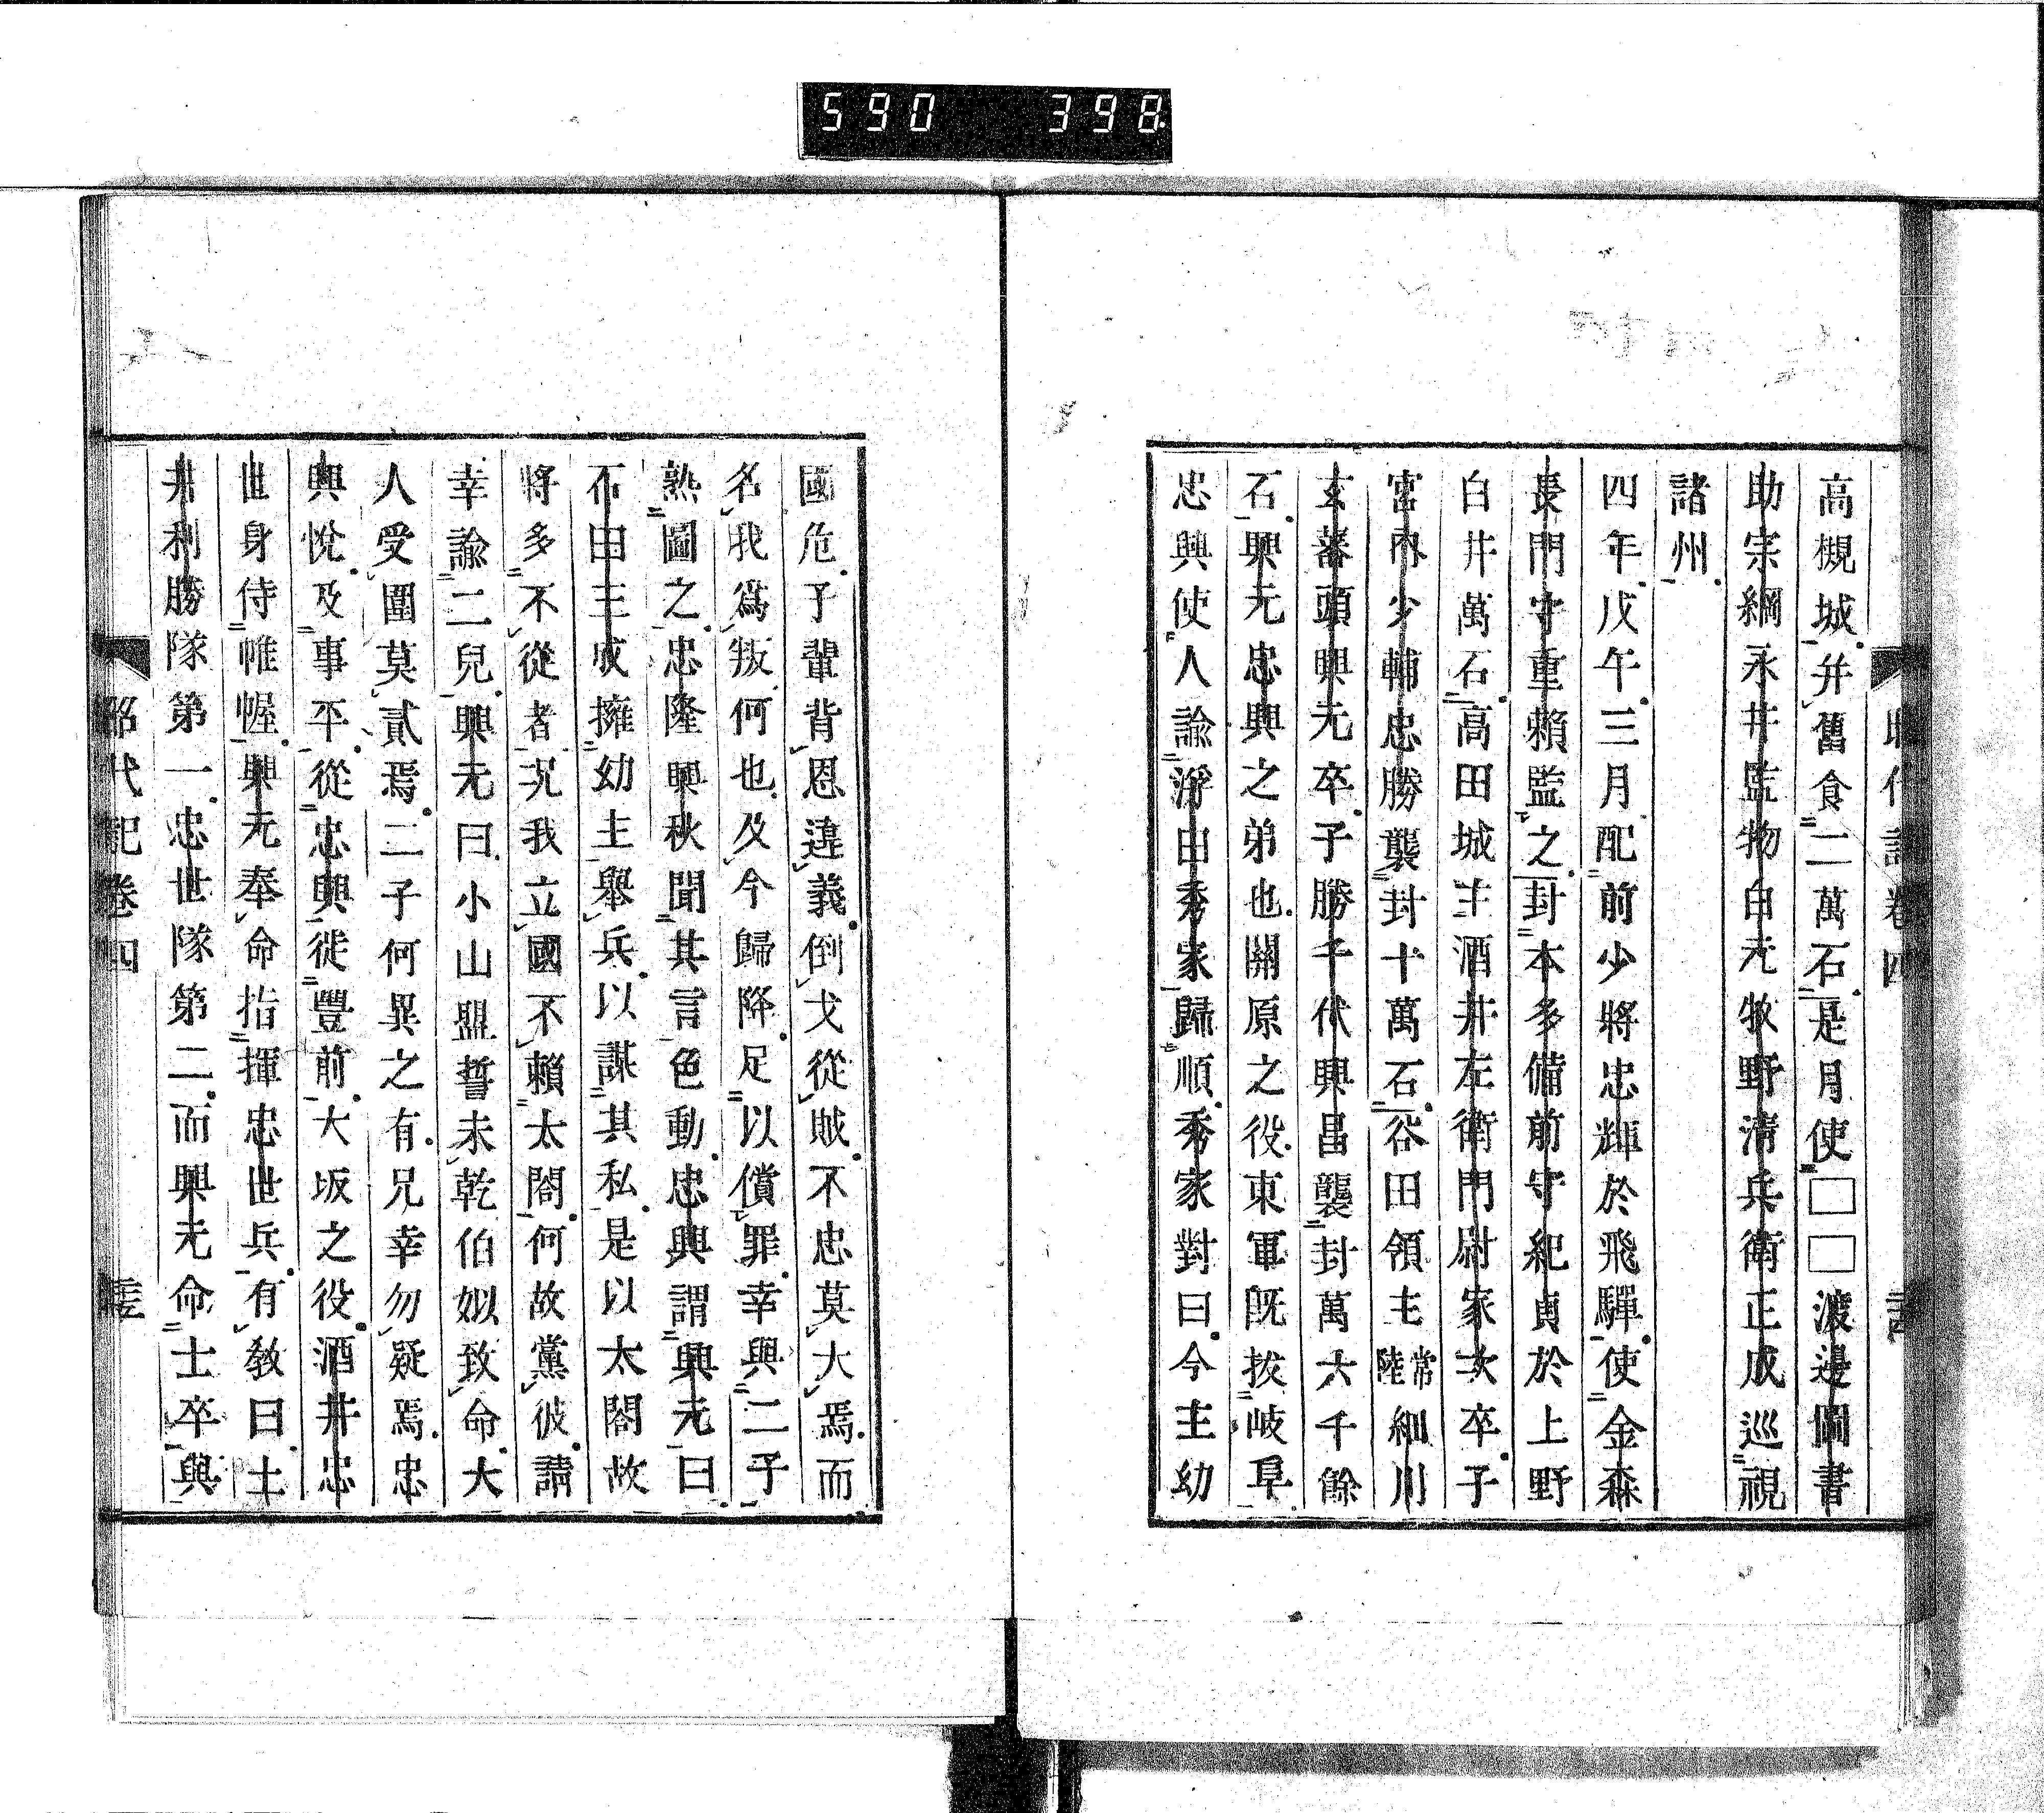 590 398
高槻城并舊食二萬石是月使□□渡邊圖書
助宗綱永井監物白元牧野清兵衛正成巡視
諸州
四年戊午三月配前少將忠輝於飛驒使金森
長門守重賴監之封本多備前守紀貞於上野
白井萬石高田城主酒井左衛門尉家次卒子
宮內少輔忠勝襲封十萬石谷田領主常陸細川
玄蕃頭興元卒子勝千代興昌襲封萬六千餘
石興元忠興之弟也關原之役東軍既拔岐阜
忠興使人諭浮田秀家歸順秀家對曰今主幼
國危予輩背恩違義倒戈從賊不忠莫大焉而
名我爲叛何也及今歸降足以償罪幸與二子
熟圖之忠隆興秋聞其言色動忠興謂興元曰
石田三成擁幼主舉兵以謀其私是以太閤故
將多不從者況我立國不賴太閤何故黨彼請
幸諭二兒興元曰小山盟誓未乾伯姒致命大
人受圍莫貳焉二子何異之有兄幸勿疑焉忠
興悅及事平從忠興徙豐前大坂之役酒井忠
世身侍帷幄興元奉命指揮忠世兵有敎曰土
井利勝隊第一忠世隊第二而興元命士卒與
昭代記卷四